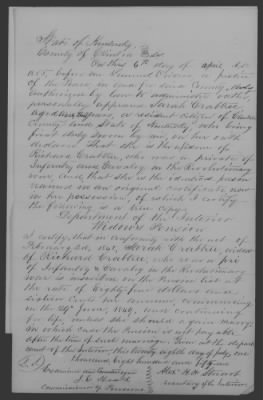 State of Kentucky
County of Clinton
On this 6th day of April A.D.
1855 before me
of the Peace in and for said County, duly
authorized by law to administer oaths,
personally appears Sarah Crabtree
aged years, a resident citizen of Clinton
County and State of Kentucky, who being
first duly sworn by me, on her oath
declares that she is the widow of
Richard Crabtree, who was a private of
Infantry and Cavalry in the Revolutionary
war, and that she is the identical person
named in an original certificate now
in her possession, of which I certify
the following is a true copy.
Department of the Interior
Widows Pension
I certify, that in conformity with the act of
February 2d, 1848, Sarah Crabtree, widow
of Richard Crabtree, who was a pri
of Infantry & Cavalry in the Revolutionary
war is inscribed on the Pension list at
the rate of Eighty five dollars and
sixteen Cents per annum, commencing
on the June, 1849, and continuing
for life, unless she should again marry
in which case the Pension is not payable
after the time of such marriage. Given at the depart
ment of the Interior, this twenty eighth day of July, one
thousand eight hundred and fifty one
Examined and Countersigned Alex. H. H. Stuart
J. E. Heath Secretary of the Interior
Commissioner of Pensions